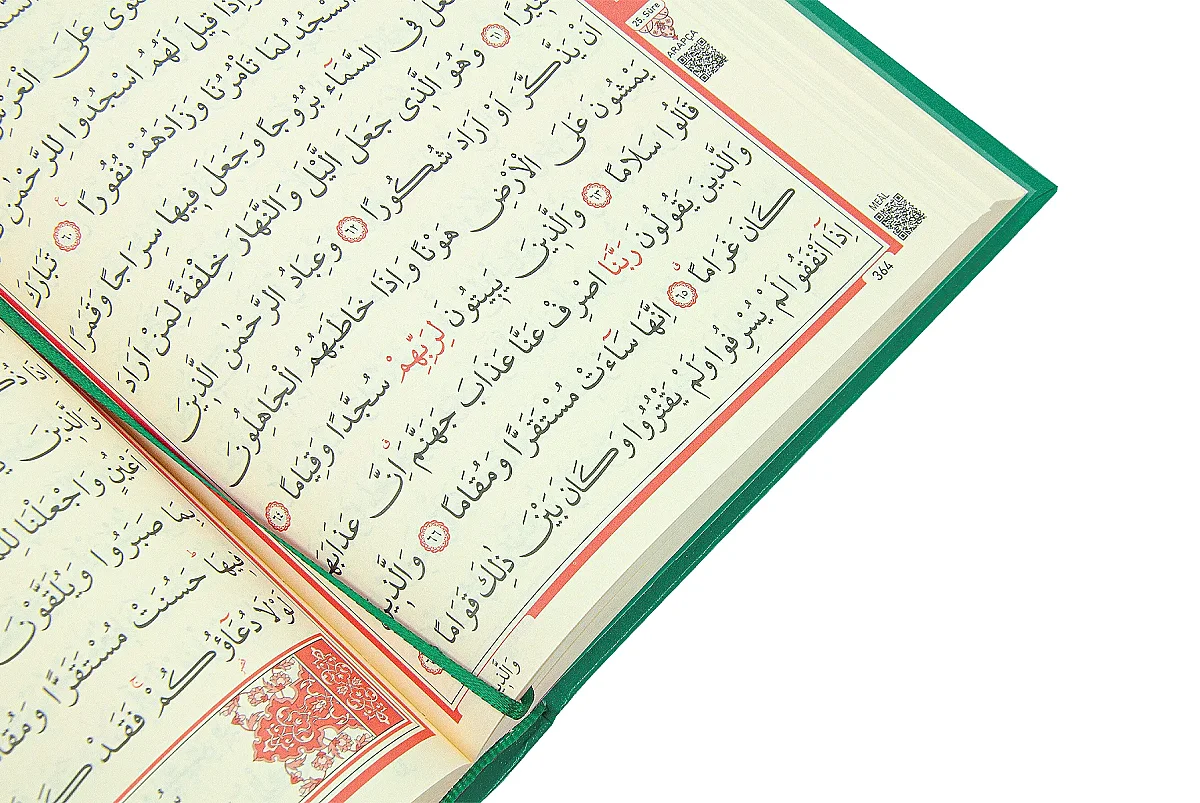 25. Sûre
ARAPÇA
عَلَى الْعَرْشِ
قِيلَ لَهُمُ اسْجُدُوا لِلرَّحْمٰنِ
لِمَا تَأْمُرُنَا وَزَادَهُمْ نُفُورًا ٦٠ تَبَارَكَ
فِي السَّمَٓاءِ بُرُوجًا وَجَعَلَ فِيهَا سِرَاجًا وَقَمَرًا
٦١ وَهُوَ الَّذِي جَعَلَ الَّيْلَ وَالنَّهَارَ خِلْفَةً لِمَنْ اَرَادَ
اَنْ يَذَّكَّرَ اَوْ اَرَادَ شُكُورًا ٦٢ وَعِبَادُ الرَّحْمٰنِ الَّذِينَ
يَمْشُونَ عَلَى الْاَرْضِ هَوْنًا وَاِذَا خَاطَبَهُمُ الْجَاهِلُونَ
قَالُوا سَلَامًا ٦٣ وَالَّذِينَ يَبِيتُونَ لِرَبِّهِمْ سُجَّدًا وَقِيَامًا ٦٤
وَالَّذِينَ يَقُولُونَ رَبَّنَا اصْرِفْ عَنَّا عَذَابَ جَهَنَّمَ اِنَّ عَذَابَهَا
كَانَ غَرَامًا ٦٥ اِنَّهَا سَٓاءَتْ مُسْتَقَرًّا وَمُقَامًا ٦٦ وَالَّذِينَ
اِذَٓا اَنْفَقُوا لَمْ يُسْرِفُوا وَلَمْ يَقْتُرُوا وَكَانَ بَيْنَ ذٰلِكَ قَوَامًا
MEÂL
364
وَالَّذِينَ
اَعْيُنٍ وَاجْعَلْنَا
بِمَا صَبَرُوا وَيُلَقَّوْنَ
فِيهَا حَسُنَتْ مُسْتَقَرًّا وَمُقَامًا
لَوْلَا دُعَٓاؤُكُمْ فَقَدْ